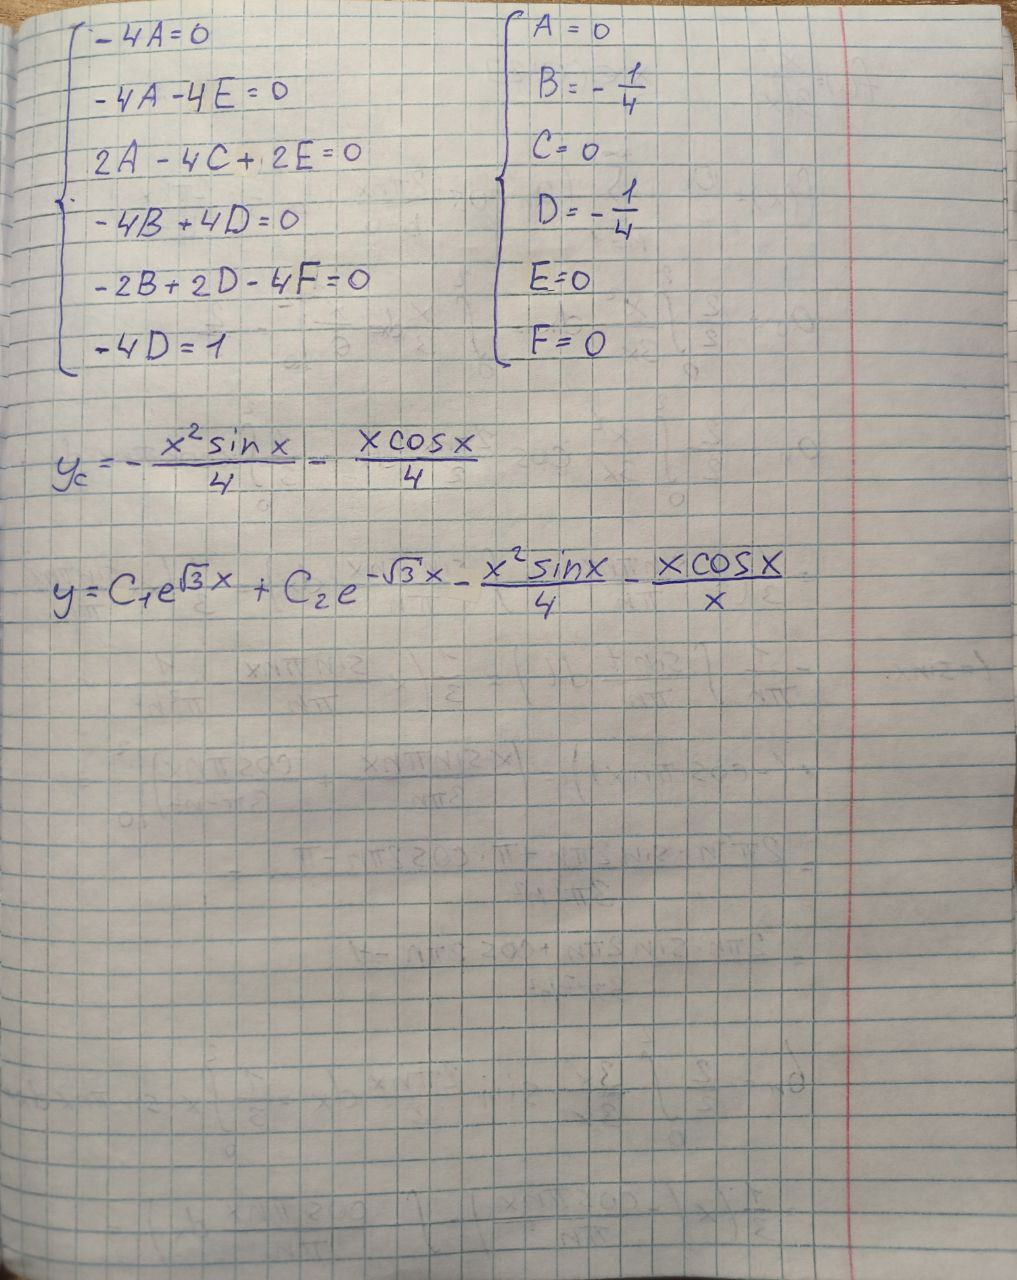 -4A=0
-4A-4E=0
2A-4C+2E=0
-4B+4D=0
-2B+2D-4F=0
-4D=1
A=0
B=-1/4
C=0
D=-1/4
E=0
F=0
y_c=-\frac{x^2 sin x}{4}-\frac{x cos x}{4}
y=C_1e^{\sqrt{3}x}+C_2e^{-\sqrt{3}x}-\frac{x^2 sin x}{4}-\frac{x cos x}{x}